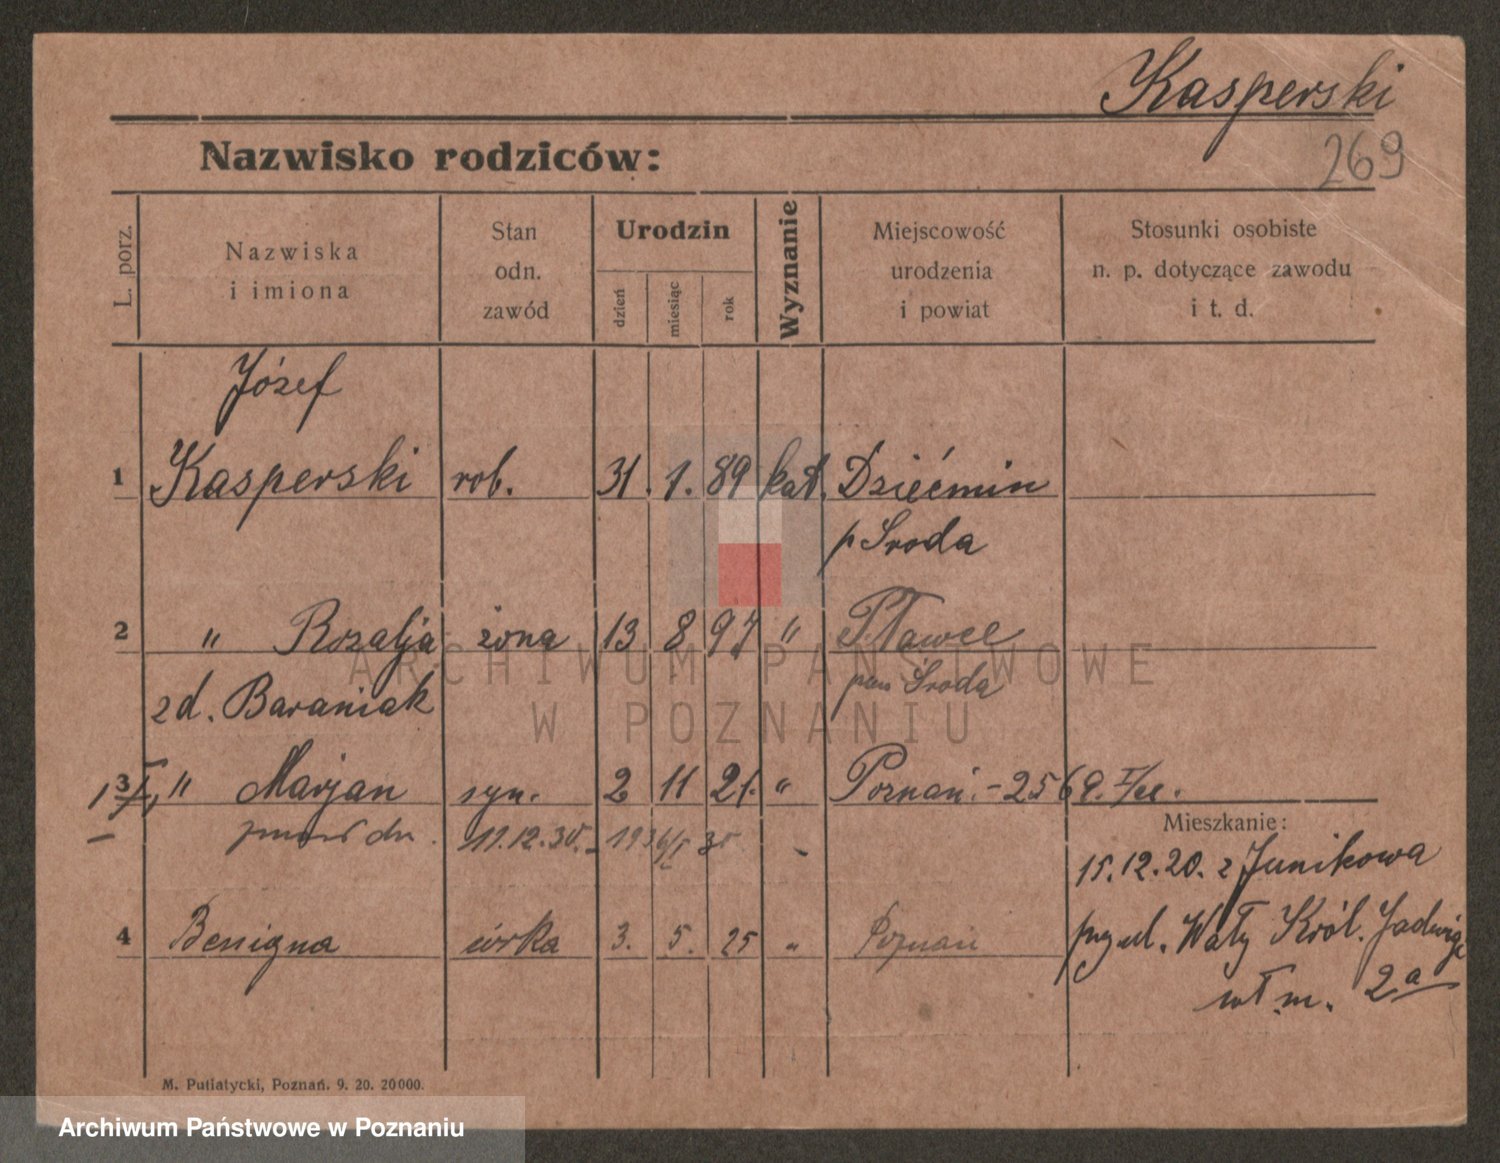 Kasperski
269
Nazwisko rodziców:
L. porz.
Nazwiska
i imiona
Stan
odn.
zawód
Urodzin
dzień
miesiąc
rok
Wyznanie
Miejscowość
urodzenia
i powiat
Stosunki osobiste
n. p. dotyczące zawodu
i t. d.
Józef
1 Kasperski rob. 31. 1. 89 kat. Dziećmin
p Sroda
2 " Rozalja żona 13 8 97 " Pławce
pow Sroda
zd. Baraniak
3 " Marjan syn. 2 11 21. " Poznań. - 2569.
dn. 11.12.30.
Mieszkanie:
15.12.20. z Junikowa
4 Benigna córka 3. 5. 25 " Poznań
ul. Wały Król. Jadwigi
wł. m. 2a
M. Putiatycki, Poznań. 9. 20. 20000.
ARCHIWUM PAŃSTWOWE
W POZNANIU
Archiwum Państwowe w Poznaniu